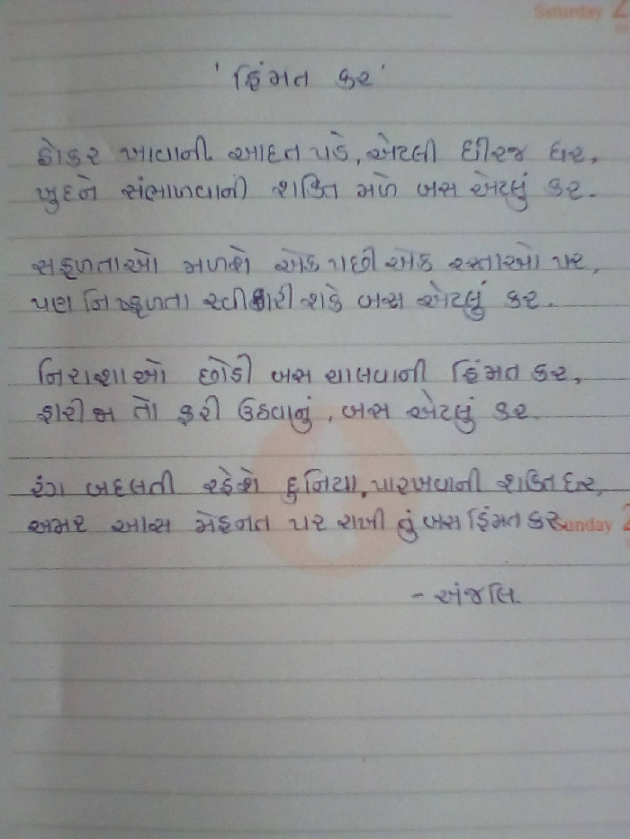 Saturday 2
'હિંમત કર'
ઠોકર ખાવાની આદત પડે, એટલી ધીરજ ધર,
ખુદને સંભાળવાની શક્તિ મળે બસ એટલું કર.
સફળતાઓ મળશે એક પછી એક રસ્તાઓ પર,
પણ નિષ્ફળતા સ્વીકારી શકે બસ એટલું કર.
નિરાશાઓ છોડી બસ ચાલવાની હિંમત કર,
હારીજા તો ફરી ઉઠવાનું, બસ એટલું કર.
રંગ બદલતી રહેશે દુનિયા, પારખવાની શક્તિ ધર,
અમર આસ મેહનત પર રાખી તું બસ હિંમત કર.
Sunday 2
- અંજલિ.